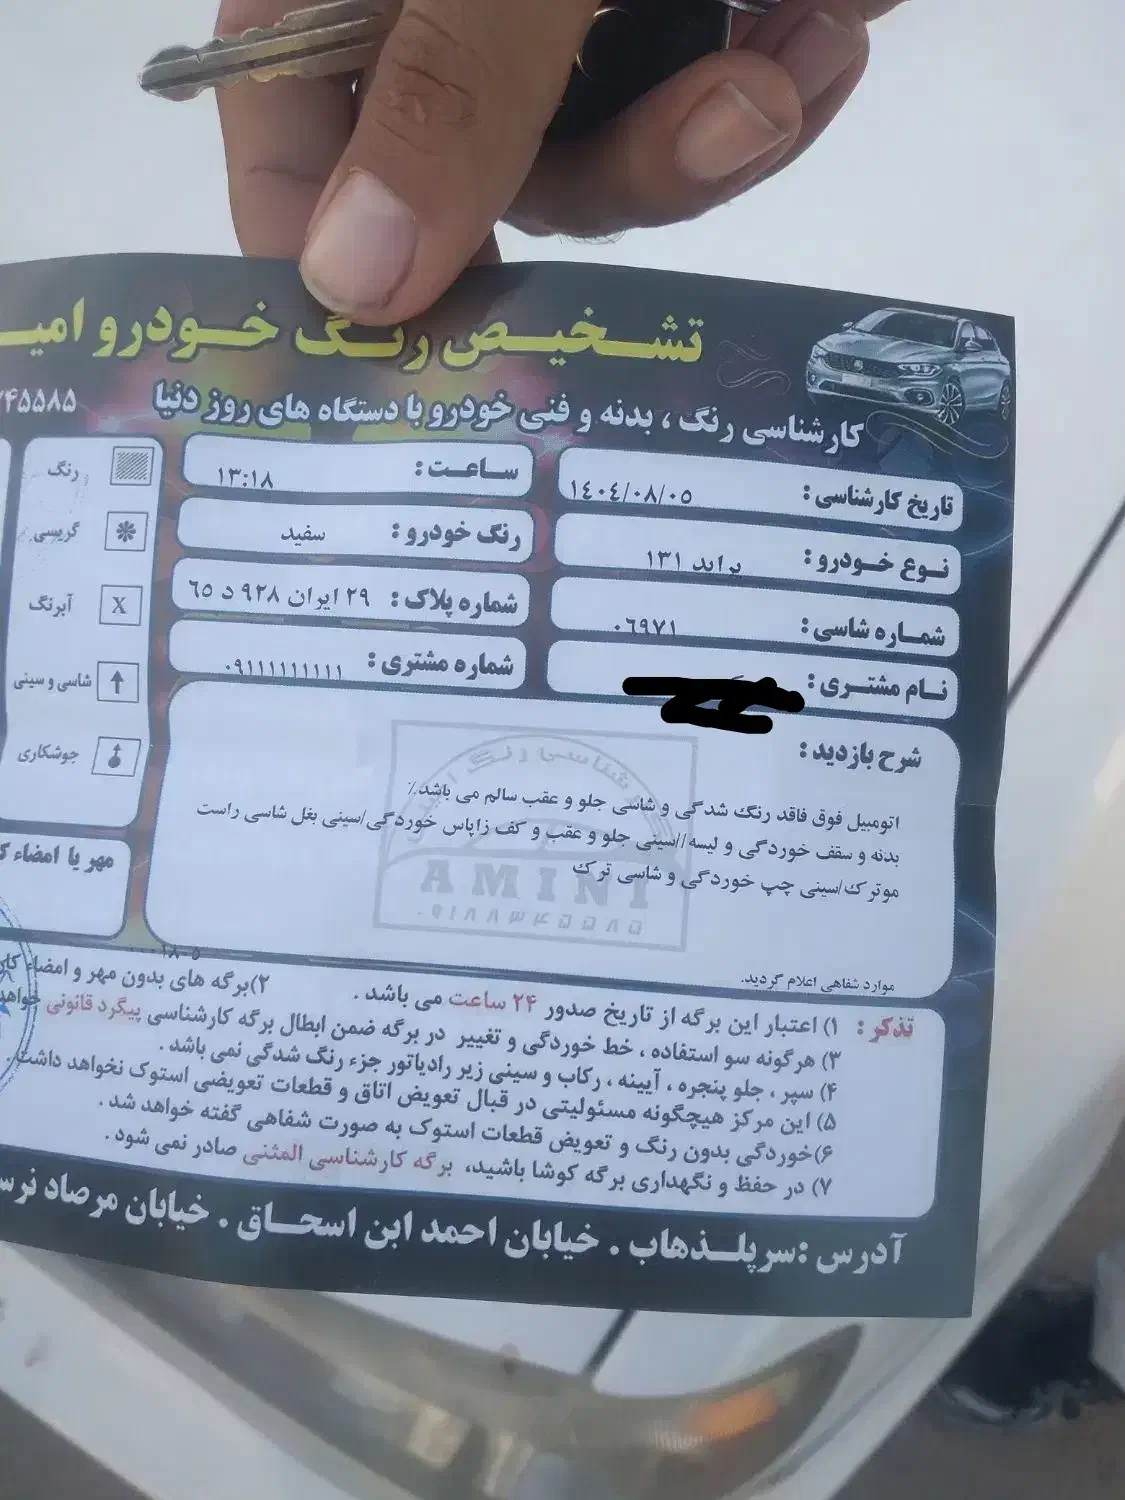 تشخیص رنگ خودرو امیـ
کارشناسی رنگ ، بدنه و فنی خودرو با دستگاه های روز دنیا
۷۴۵۵۸۵
تاریخ کارشناسی : ١٤٠٤/٠٨/٠٥
ساعت : ١٣:١٨
نوع خودرو : پراید ١٣١
رنگ خودرو : سفید
شماره شاسی : ٠٦٩٧١
شماره پلاک : ٢٩ ایران ٩٢٨ د ٦٥
نام مشتری :
شماره مشتری : ٠٩١١١١١١١١١
رنگ
گریسی
X آبرنگ
شاسی و سینی
جوشکاری
مهر یا امضاء
شرح بازدید :
اتومبیل فوق فاقد رنگ شدگی و شاسی جلو و عقب سالم می باشد.٪
بدنه و سقف خوردگی و لیسه//سینی جلو و عقب و کف زاپاس خوردگی/سینی بغل شاسی راست
موترک/سینی چپ خوردگی و شاسی ترک
کارشناسی رنگ
AMINI
۰۹۱۸۸۳۴۵۵۸۵
موارد شفاهی اعلام گردید.
تذکر : ۱) اعتبار این برگه از تاریخ صدور ۲۴ ساعت می باشد . ۲)برگه های بدون مهر و امضاء
۳) هرگونه سو استفاده ، خط خوردگی و تغییر در برگه ضمن ابطال برگه کارشناسی پیگرد قانونی خواهد
۴) سپر ، جلو پنجره ، آیینه ، رکاب و سینی زیر رادیاتور جزء رنگ شدگی نمی باشد .
۵) این مرکز هیچگونه مسئولیتی در قبال تعویض اتاق و قطعات تعویضی استوک نخواهد داشت .
۶)خوردگی بدون رنگ و تعویض قطعات استوک به صورت شفاهی گفته خواهد شد .
۷) در حفظ و نگهداری برگه کوشا باشید، برگه کارشناسی المثنی صادر نمی شود .
آدرس :سرپلذهاب . خیابان احمد ابن اسحاق . خیابان مرصاد نرسـ